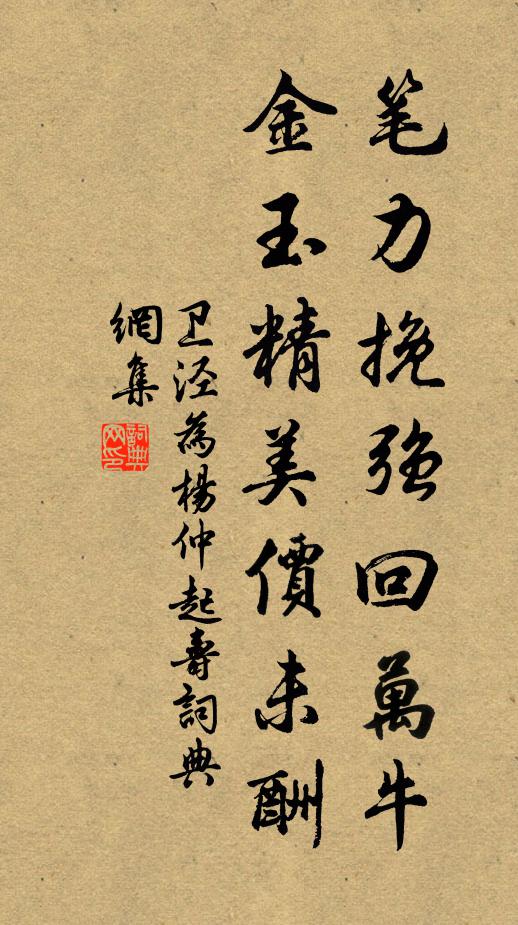 笔力挽強回萬牛
金玉精美價未酬
卫泾為楊仲起壽詞典
網集
詞典網印